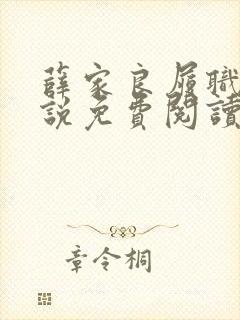 薛家良履職
說免費閱讀
章令桐